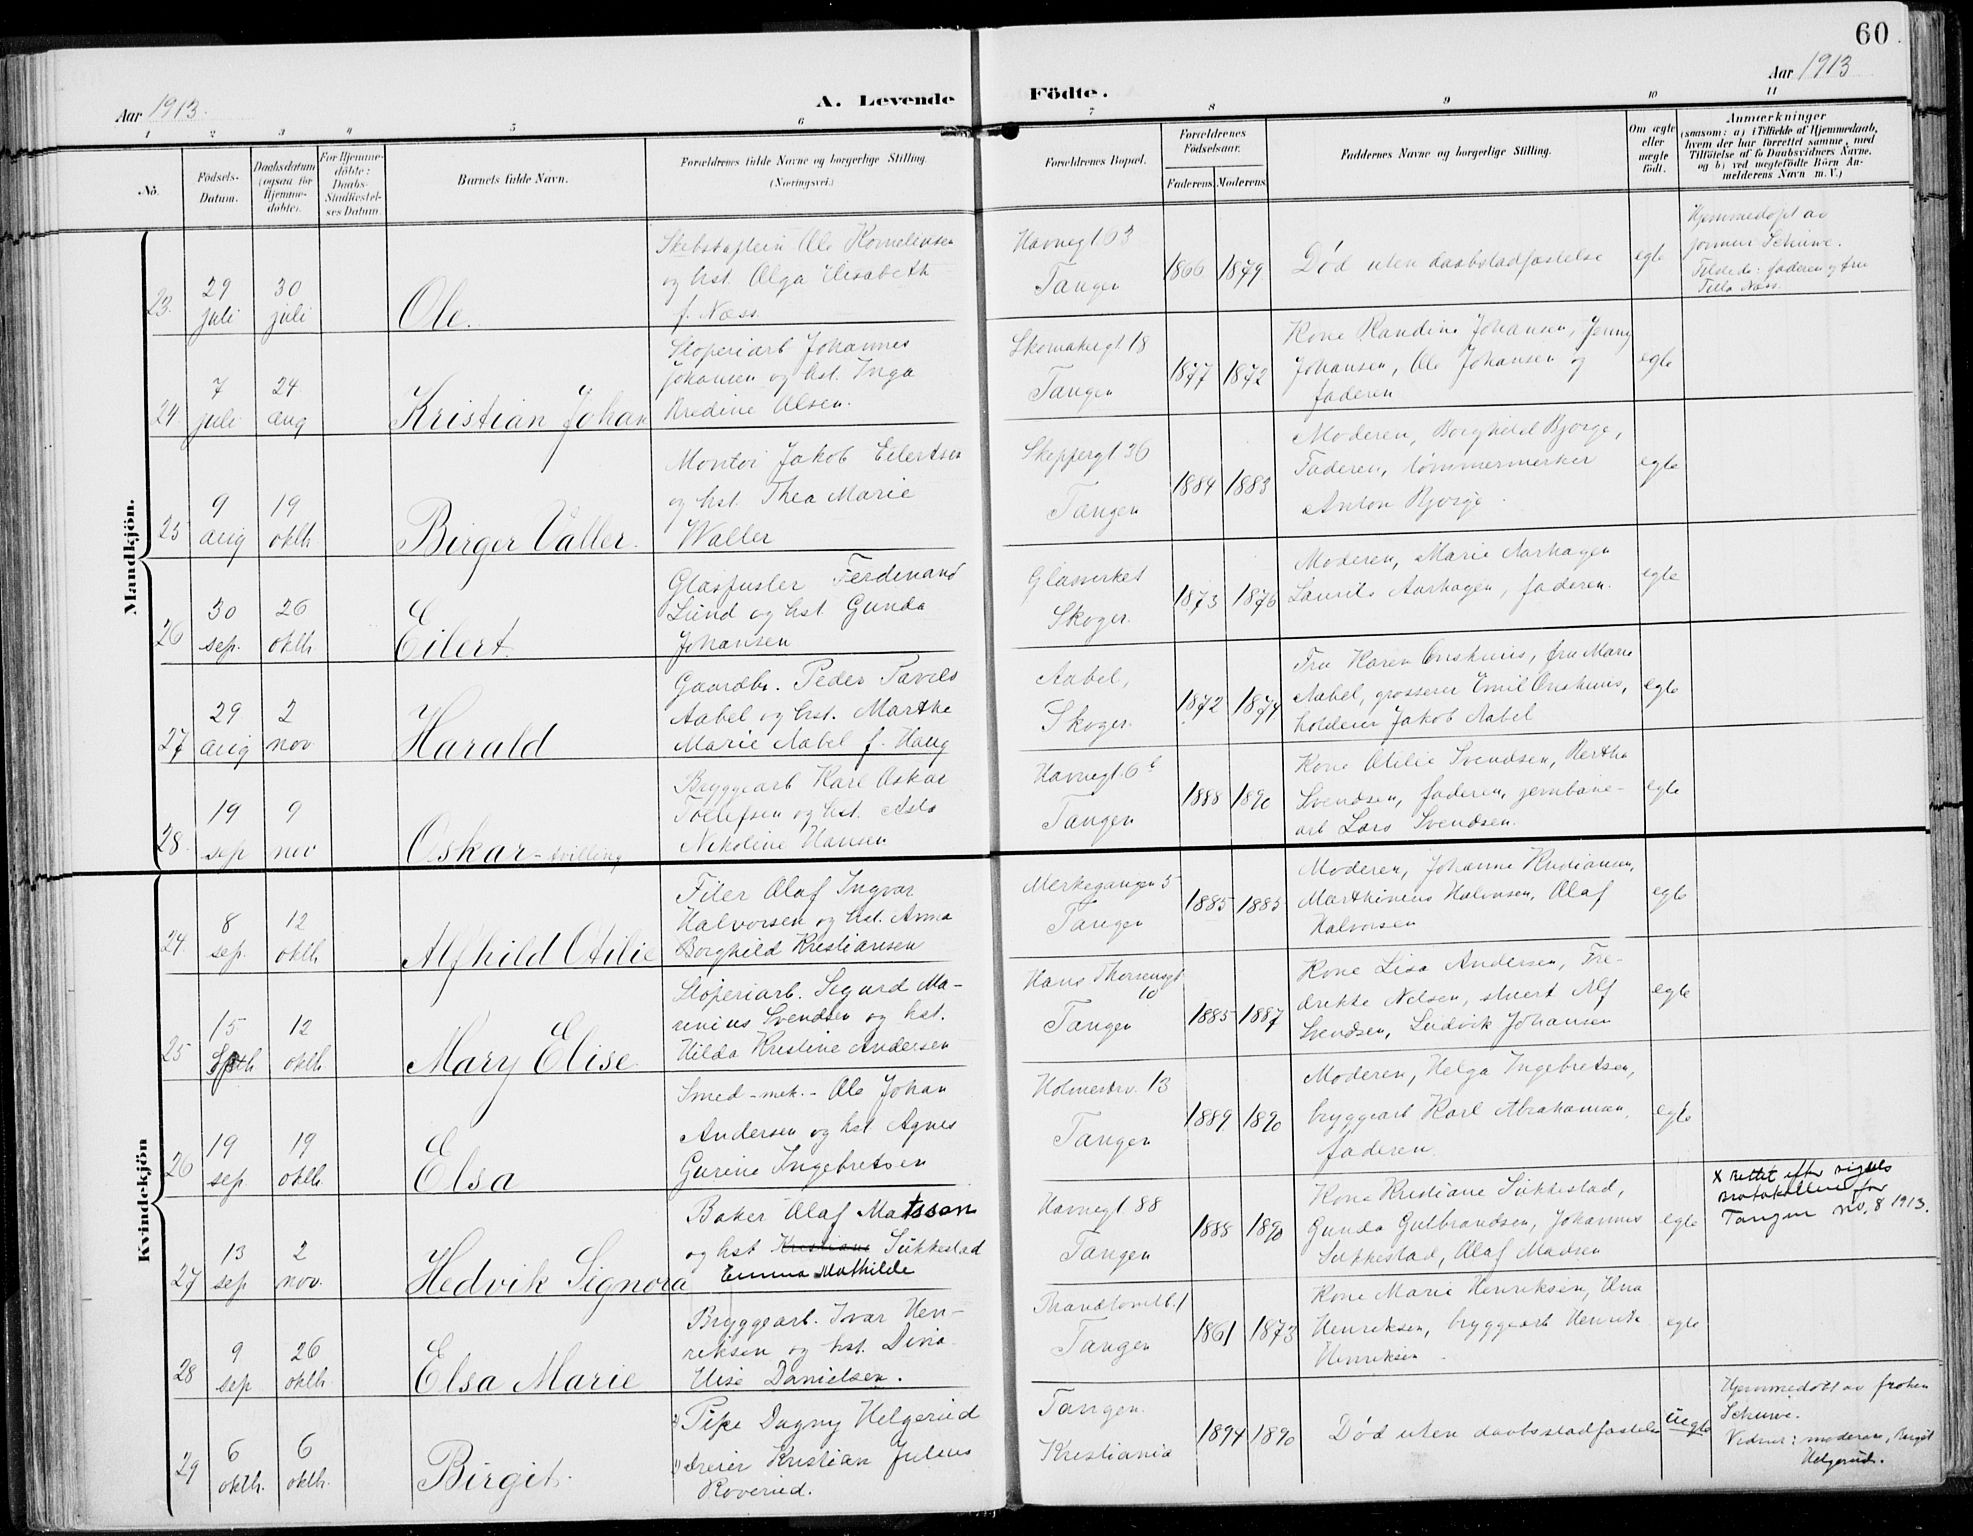 60
Aar 1913.
A. Levende Födte.
Aar 1913
1 2 3 4 5 6 7 8 9 10 11
No.
Födsels-Datum.
Daabsdatum (ogsaa for Hjemme-döbte).
For Hjemme-döbte: Daabs-Stadfæstel-ses Datum.
Barnets fulde Navn.
Forældrenes fulde Navne og borgerlige Stilling. (Næringsvei.)
Forældrenes Bopæl.
Forældrenes Födselsaar.
Faderens. Moderens.
Faddernes Navne og borgerlige Stilling.
Om ægte eller uægte födt.
Anmærkninger
(saasom: a) i Tilfælde af Hjemmedaab,
hvem der har forrettet samme, med
Tilföielse af to Daabsvidners Navne,
og b) ved uægtefödte Börn An-
melderens Navn m. V.)
Mandkjön.
23. 29 juli 30 juli
Ole.
Ole Kornelinsen
og hst. Olga Elisabeth
f. Næss
Havnegt 63
Tangen
1866 1879
Død uten daabstadfæstelse
egte
Hjemmedøpt av
jormor Schuwe.
Tilstede: faderen og fru
Næss.
24 7 juli 24 aug
Kristian Johan
Støperiarb Johannes
Johansen og hst. Inga
Olsen.
Skomakergt 18
Tangen
1877 1872
Kone Randine Johansen, Jenny
Johansen, Ole Johansen og
faderen
egte
25 9 aug 19 oktb
Birger Valler.
Montør Jakob Eilertsen
og hst. Thea Marie
Waller
Skippergt 36
Tangen
1884 1883
Moderen, Borghild Bjørge,
Faderen, tømmermerker
Anton Bjørge.
egte
26 30 sep. 26 oktb
Eilert.
Glaspuster Ferdinand
Lund og hst. Gunda
Johansen
Glasverket
Skoger.
1873 1876
Moderen, Marie Aarhagen
Laurits Aarhagen, faderen.
egte
27 29 aug 2 nov
Harald
Gaardbr. Peder Pavels
Aabel og hst. Marthe
Marie Aabel f. Haug
Aabel,
Skoger.
1872 1874
Fru Karen Onshuus, fru Marie
Aabel, grosserer Emil Onshuus,
Jakob Aabel
egte
28. 19 sep 9 nov
Oskar - tvilling
Bryggearb Karl Oskar
Tollefsen og hst. Asta
Nikoline Hansen
Havnegt. 6 b
Tangen
1888 1890
Kone Otilie Svendsen, Bertha
Svendsen, faderen, jernbane-
arb Lars Svendsen.
egte
Kvindekjön
24. 8 sep. 12 oktb.
Alfhild Otilie
Filer Olaf Ingvar
Halvorsen og hst. Anna
Borghild Kristiansen
Merkegangen 5
Tangen
1885 1885
Moderen, Johanne Kristiansen,
Marthinius Halvorsen, Olaf
Halvorsen
egte
25 15 Septb 12 oktb
Mary Elise
Støperiarb. Sigurd Ma-
renius Svendsen og hst.
Hilda Kristine Andersen
Hans Thornesgt
10
Tangen
1885 1887
Kone Lisa Andersen, Fre-
drikke Nelsen, stuert Alf
Svendsen, Ludvik Johansen
egte
26 19 sep 19 oktb.
Elsa
Smed-mek. - Ole Johan
Andersen og hst Agnes
Gurine Ingebretsen
Holmestrv. 13
Tangen
1889 1890
Moderen, Helga Ingebretsen,
bryggearb Karl Abrahamsen,
faderen.
egte
27 13 sep 2 nov.
Hedvik Signora
Baker Olaf Matssen
og hst Kristiane Sukkestad
Emma Mathilde
Havnegt 88
Tangen
1888 1890
Kone Kristiane Sukkestad,
Gunda Gulbrandsen, Johannes
Sukkestad, Olaf Madsen
egte
x rettet efter vigsels
protokollen for
Tangen no. 8 1913.
28 9 sep 26 oktb.
Elsa Marie
Bryggearb. Ivar Hen-
riksen og hst. Dina
Elise Danielsen.
Tangen
1861 1873
Kone Marie Henriksen,
Henriksen, bryggearb Henrik
Henriksen.
egte
29 6 oktb. 6 oktb.
Birgit.
Pike Dagny Helgerud
dreier Kristian Julius
Roverud.
Tangen.
Kristiania
1894 1890
Død uten daabsstadfæstelse
uegte
Hjemmedøbt av frøken
Schuwe.
Vidner: moderen, Birgit
Helgerud.